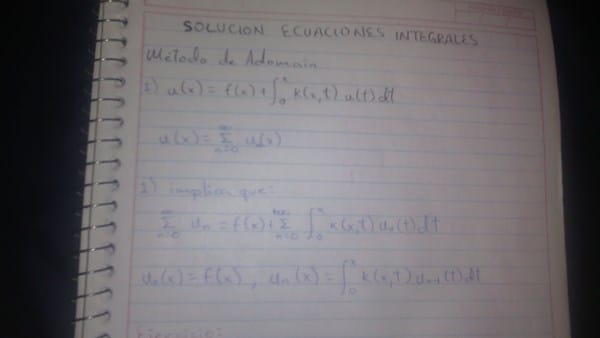 SOLUCION ECUACIONES INTEGRALES
Método de Adomain
1) u(x) = f(x) + ∫₀ˣ K(x,t) u(t) dt
u(x) = ∑_{n=0}^{∞} uₙ(x)
1) implica que:
∑_{n=0}^{∞} uₙ = f(x) + ∑_{n=0}^{∞} ∫₀ˣ K(x,t) uₙ(t) dt
u₀(x) = f(x), uₙ(x) = ∫₀ˣ K(x,t) uₙ₋₁(t) dt
Ejercicio: